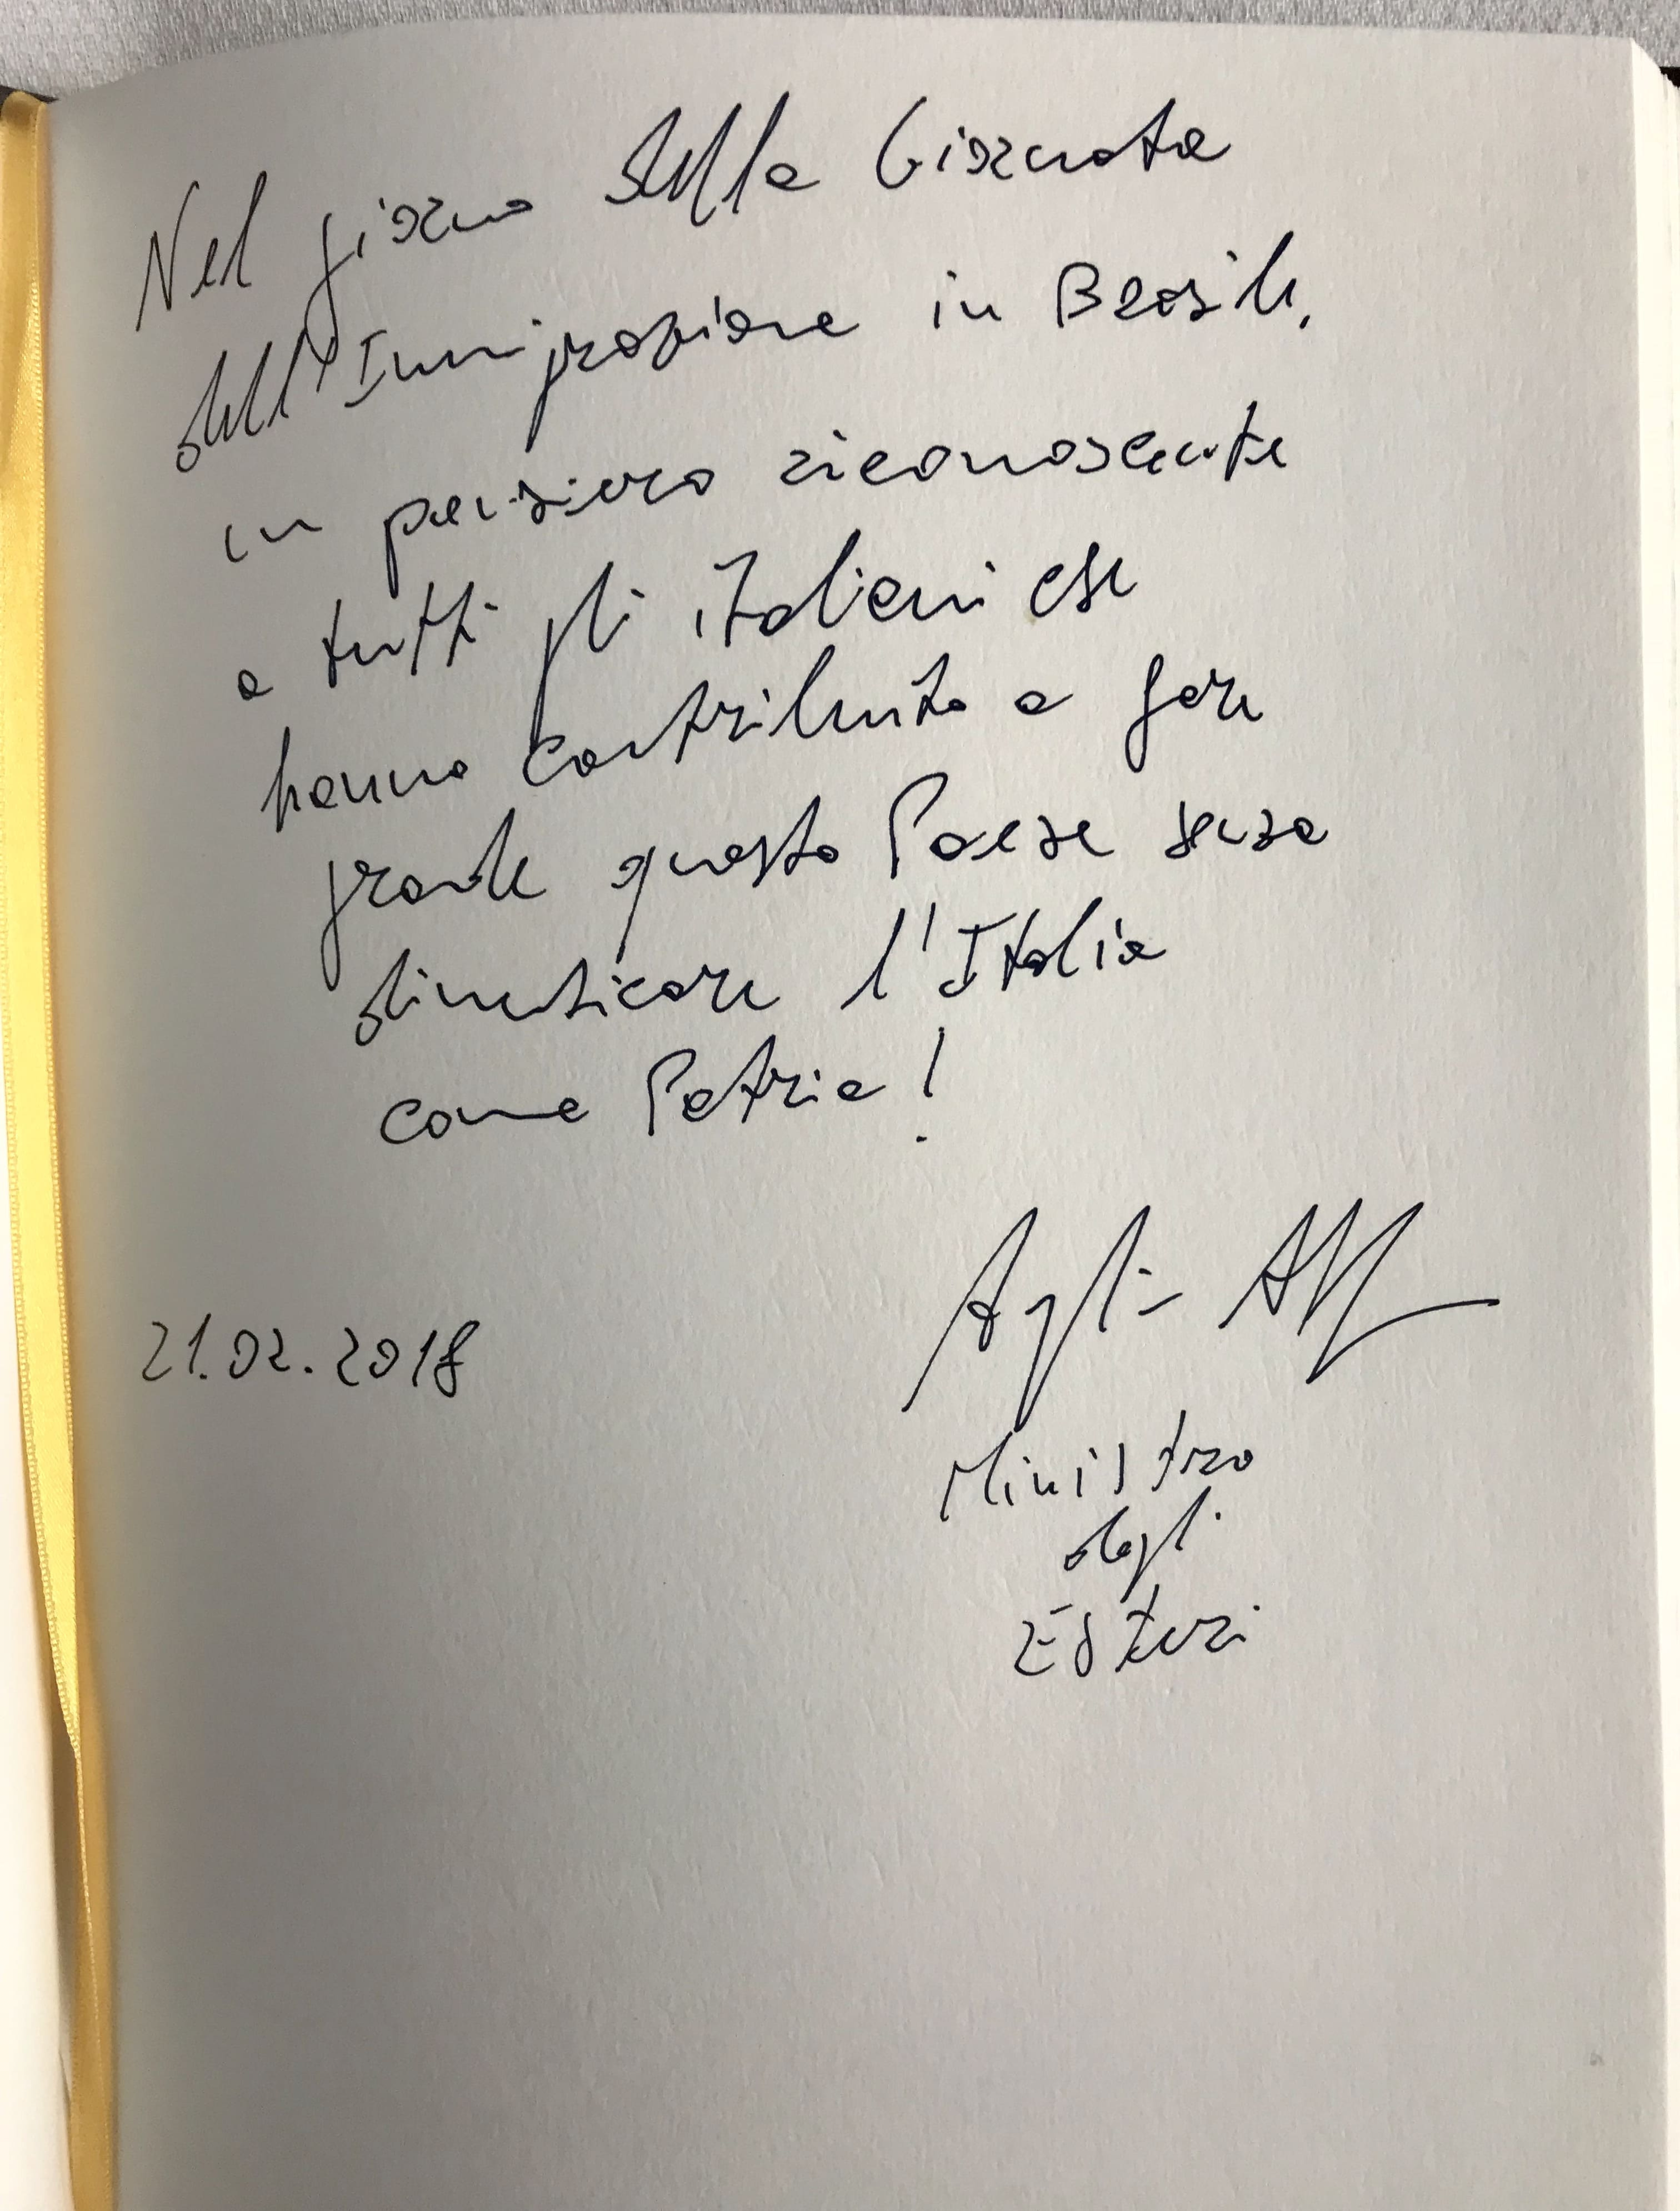 Nel giorno della Giornata
dell'Immigrazione in Brasile,
un pensiero riconoscente
a tutti gli italiani che
hanno contribuito a fare
grande questo Paese senza
dimenticare l'Italia
come Patria!
21.02.2018
Ministro
degli
Esteri